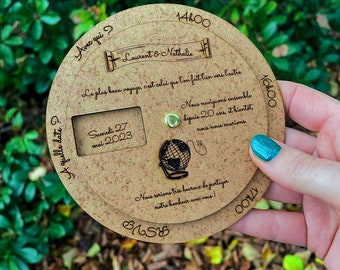 Avec qui ?
14h00
Laurent & Nathalie
Le plus beau voyage c'est celui que l'on fait l'un vers l'autre
16h00
Nous naviguons ensemble
depuis 20 ans et bientôt,
nous nous marions
A quelle date ?
Samedi 27
mai 2023
17h00
Nous serions très heureux de partager
notre bonheur avec vous !
RSVP